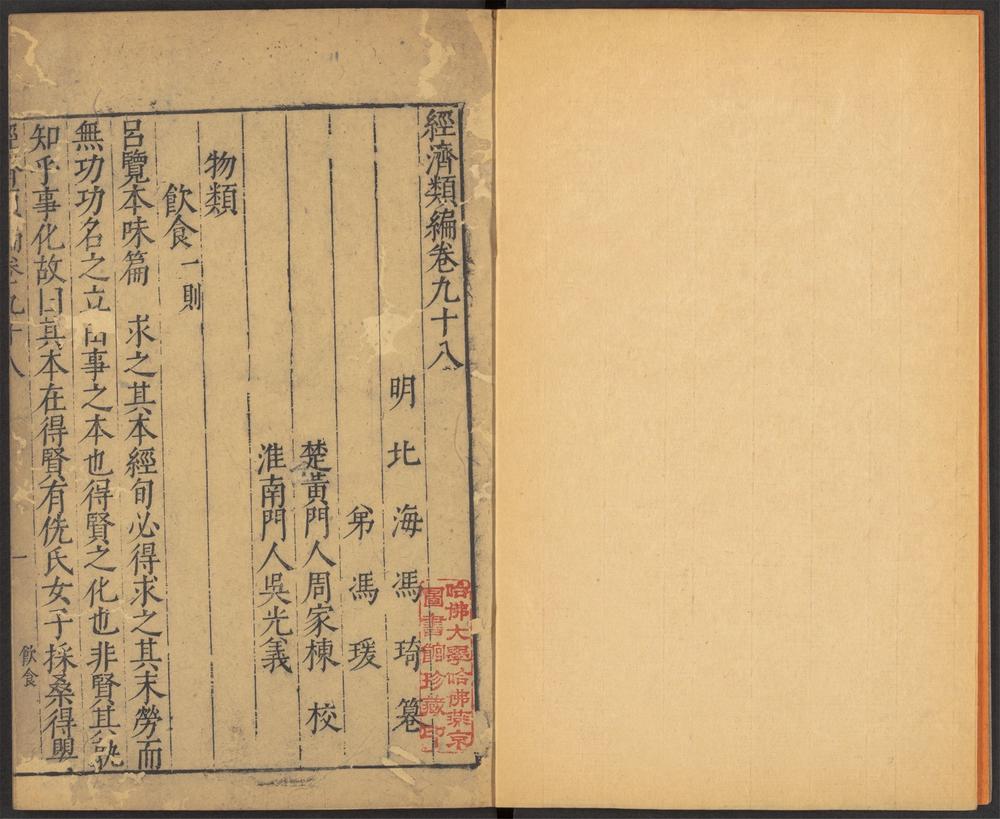 經濟類編卷九十八
明北海馮琦纂
弟馮瑗
楚黃門人周家棟校
淮南門人吳光義
物類
飲食一則
呂覽本味篇　求之其本經旬必得求之其末勞而
無功功名之立由事之本也得賢之化也非賢其孰
知乎事化故曰其本在得賢有侁氏女子採桑得嬰
飲食
一
哈佛大學哈佛燕京
圖書館珍藏印